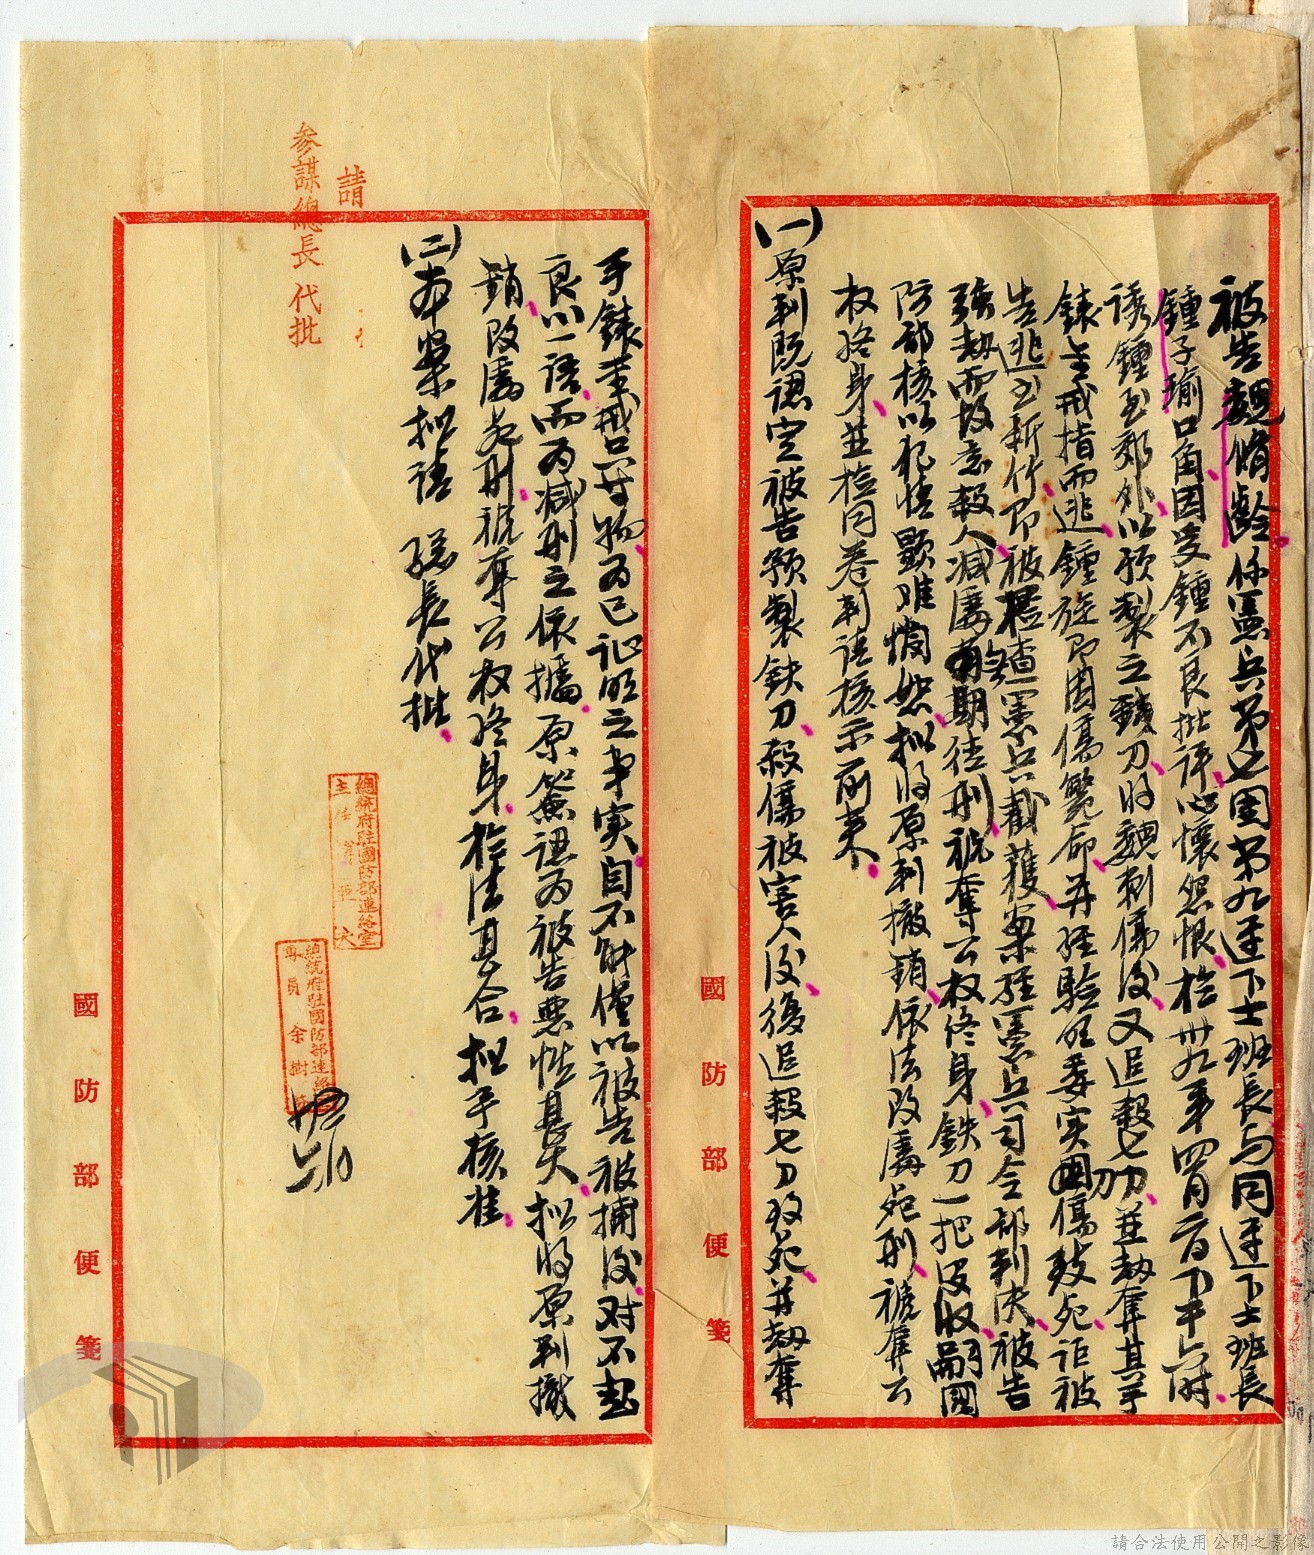 被告魏脩齡係憲兵第七團第九連下士班長与同連下士班長
鍾子瑜口角因受鍾不良批評心懷怨恨於卅九年四月一日下午六时
誘鍾至郊外以預製之鉄刀將魏刺傷後又追殺七刀並劫奪其手
錶金戒指而逃鍾旋即因傷斃命并經驗明委实因傷致死詎被
告逃至新竹即被檢查憲兵截獲案經憲兵司令部判決被告
強劫而故意殺人減處有期徒刑褫奪公权終身鉄刀一把没收嗣國
防部核以犯情顯难憫恕拟將原判撤銷依法改處死刑褫奪公
权終身並檢同卷判請核示前来
(一)原判既認定被告預製鉄刀殺傷被害人後復追殺七刀致死并劫奪
手錶金戒口等物为已証明之事实自不能僅以被告被捕後对不起
良心一語而为減刑之依據原簽認为被告惡性甚大拟將原判撤
銷改處死刑褫奪公权終身於法真合拟予核准
(二)本案拟請 總長代批
請
參謀總長 代批
總統府駐國防部連絡室
主任
總統府駐國防部連絡
專員 余樹
國防部便箋
國防部便箋
請合法使用公開之影像